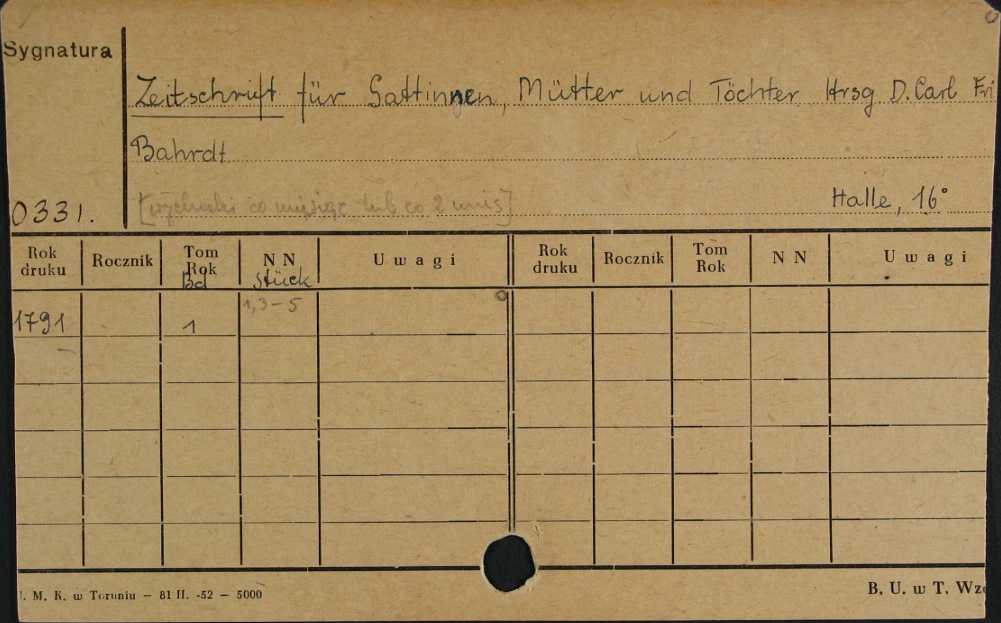 Sygnatura
Zeitschrift für Gattinnen, Mütter und Töchter Hrsg D. Carl Fri
Bahrdt
[wychodzi co miesiąc lub co 2 mies]
0331.
Halle, 16°
Rok druku Rocznik Tom Rok Bd N N Stück U w a g i Rok druku Rocznik Tom Rok N N U w a g i
1791 1 1,3-5
. M. K. w Toruniu — 81 II. -52 — 5000
B. U. w T. Wz